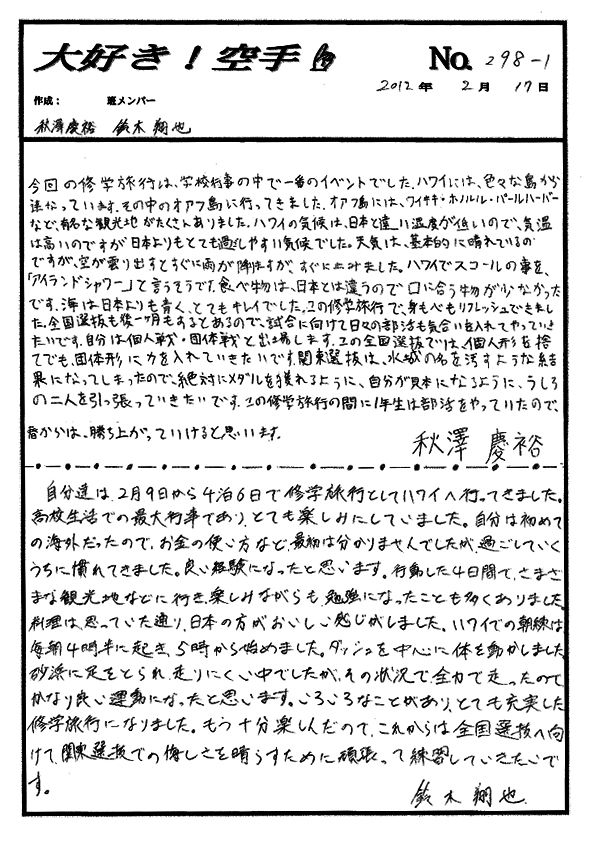 大好き！空手
No. 298-1
2012 年 2 月 17 日
作成： 班メンバー
秋澤慶裕 鈴木翔也
今回の修学旅行は、学校行事の中で一番のイベントでした。ハワイには、色々な島から
連なっています。その中のオアフ島に行ってきました。オアフ島には、ワイキキ・ホノルル・パールハーバー
など、有名な観光地がたくさんありました。ハワイの気候は、日本と違い湿度が低いので、気温
は高いのですが日本よりもとても過ごしやすい気候でした。天気は、基本的に晴れているの
ですが、空が曇り出すとすぐに雨が降りますが、すぐに止みました。ハワイでスコールの事を、
「アイランドシャワー」と言うそうです。食べ物は、日本とは違うので口に合う物が少なかった
です。海は日本よりも青く、とてもキレイでした。この修学旅行で、身も心もリフレッシュできまし
た。全国選抜も後一ヶ月もするとあるので、試合に向けて日々の部活も気合いを入れてやっていき
たいです。自分は個人戦・団体戦と出場します。この全国選抜では、個人形を捨
てでも、団体形に力を入れていきたいです。関東選抜は、水城の名を汚すような結
果になってしまったので、絶対にメダルを獲れるように、自分が見本になるように、うしろ
の二人を引っ張っていきたいです。この修学旅行の間に1年生は部活をやっていたので、
春からは、勝ち上がっていけると思います。
秋澤 慶裕
自分達は、2月9日から4泊6日で修学旅行としてハワイへ行ってきました。
高校生活での最大行事であり、とても楽しみにしていました。自分は初めて
の海外だったので、お金の使い方など、最初は分かりませんでしたが、過ごしていく
うちに慣れてきました。良い経験になったと思います。行動した4日間で、さまざ
まな観光地などに行き、楽しみながらも勉強になったことも多くありました。
料理は、思っていた通り、日本の方がおいしい感じがしました。ハワイでの朝練は
毎朝4時半に起き、5時から始めました。ダッシュを中心に体を動かしました。
砂浜に足をとられ、走りにくい中でしたが、その状況で全力で走ったので
かなり良い運動になったと思います。いろいろなことがあり、とても充実した
修学旅行になりました。もう十分楽しんだので、これからは全国選抜へ向
けて、関東選抜での悔しさを晴らすために頑張って練習していきたいで
す。
鈴木 翔也